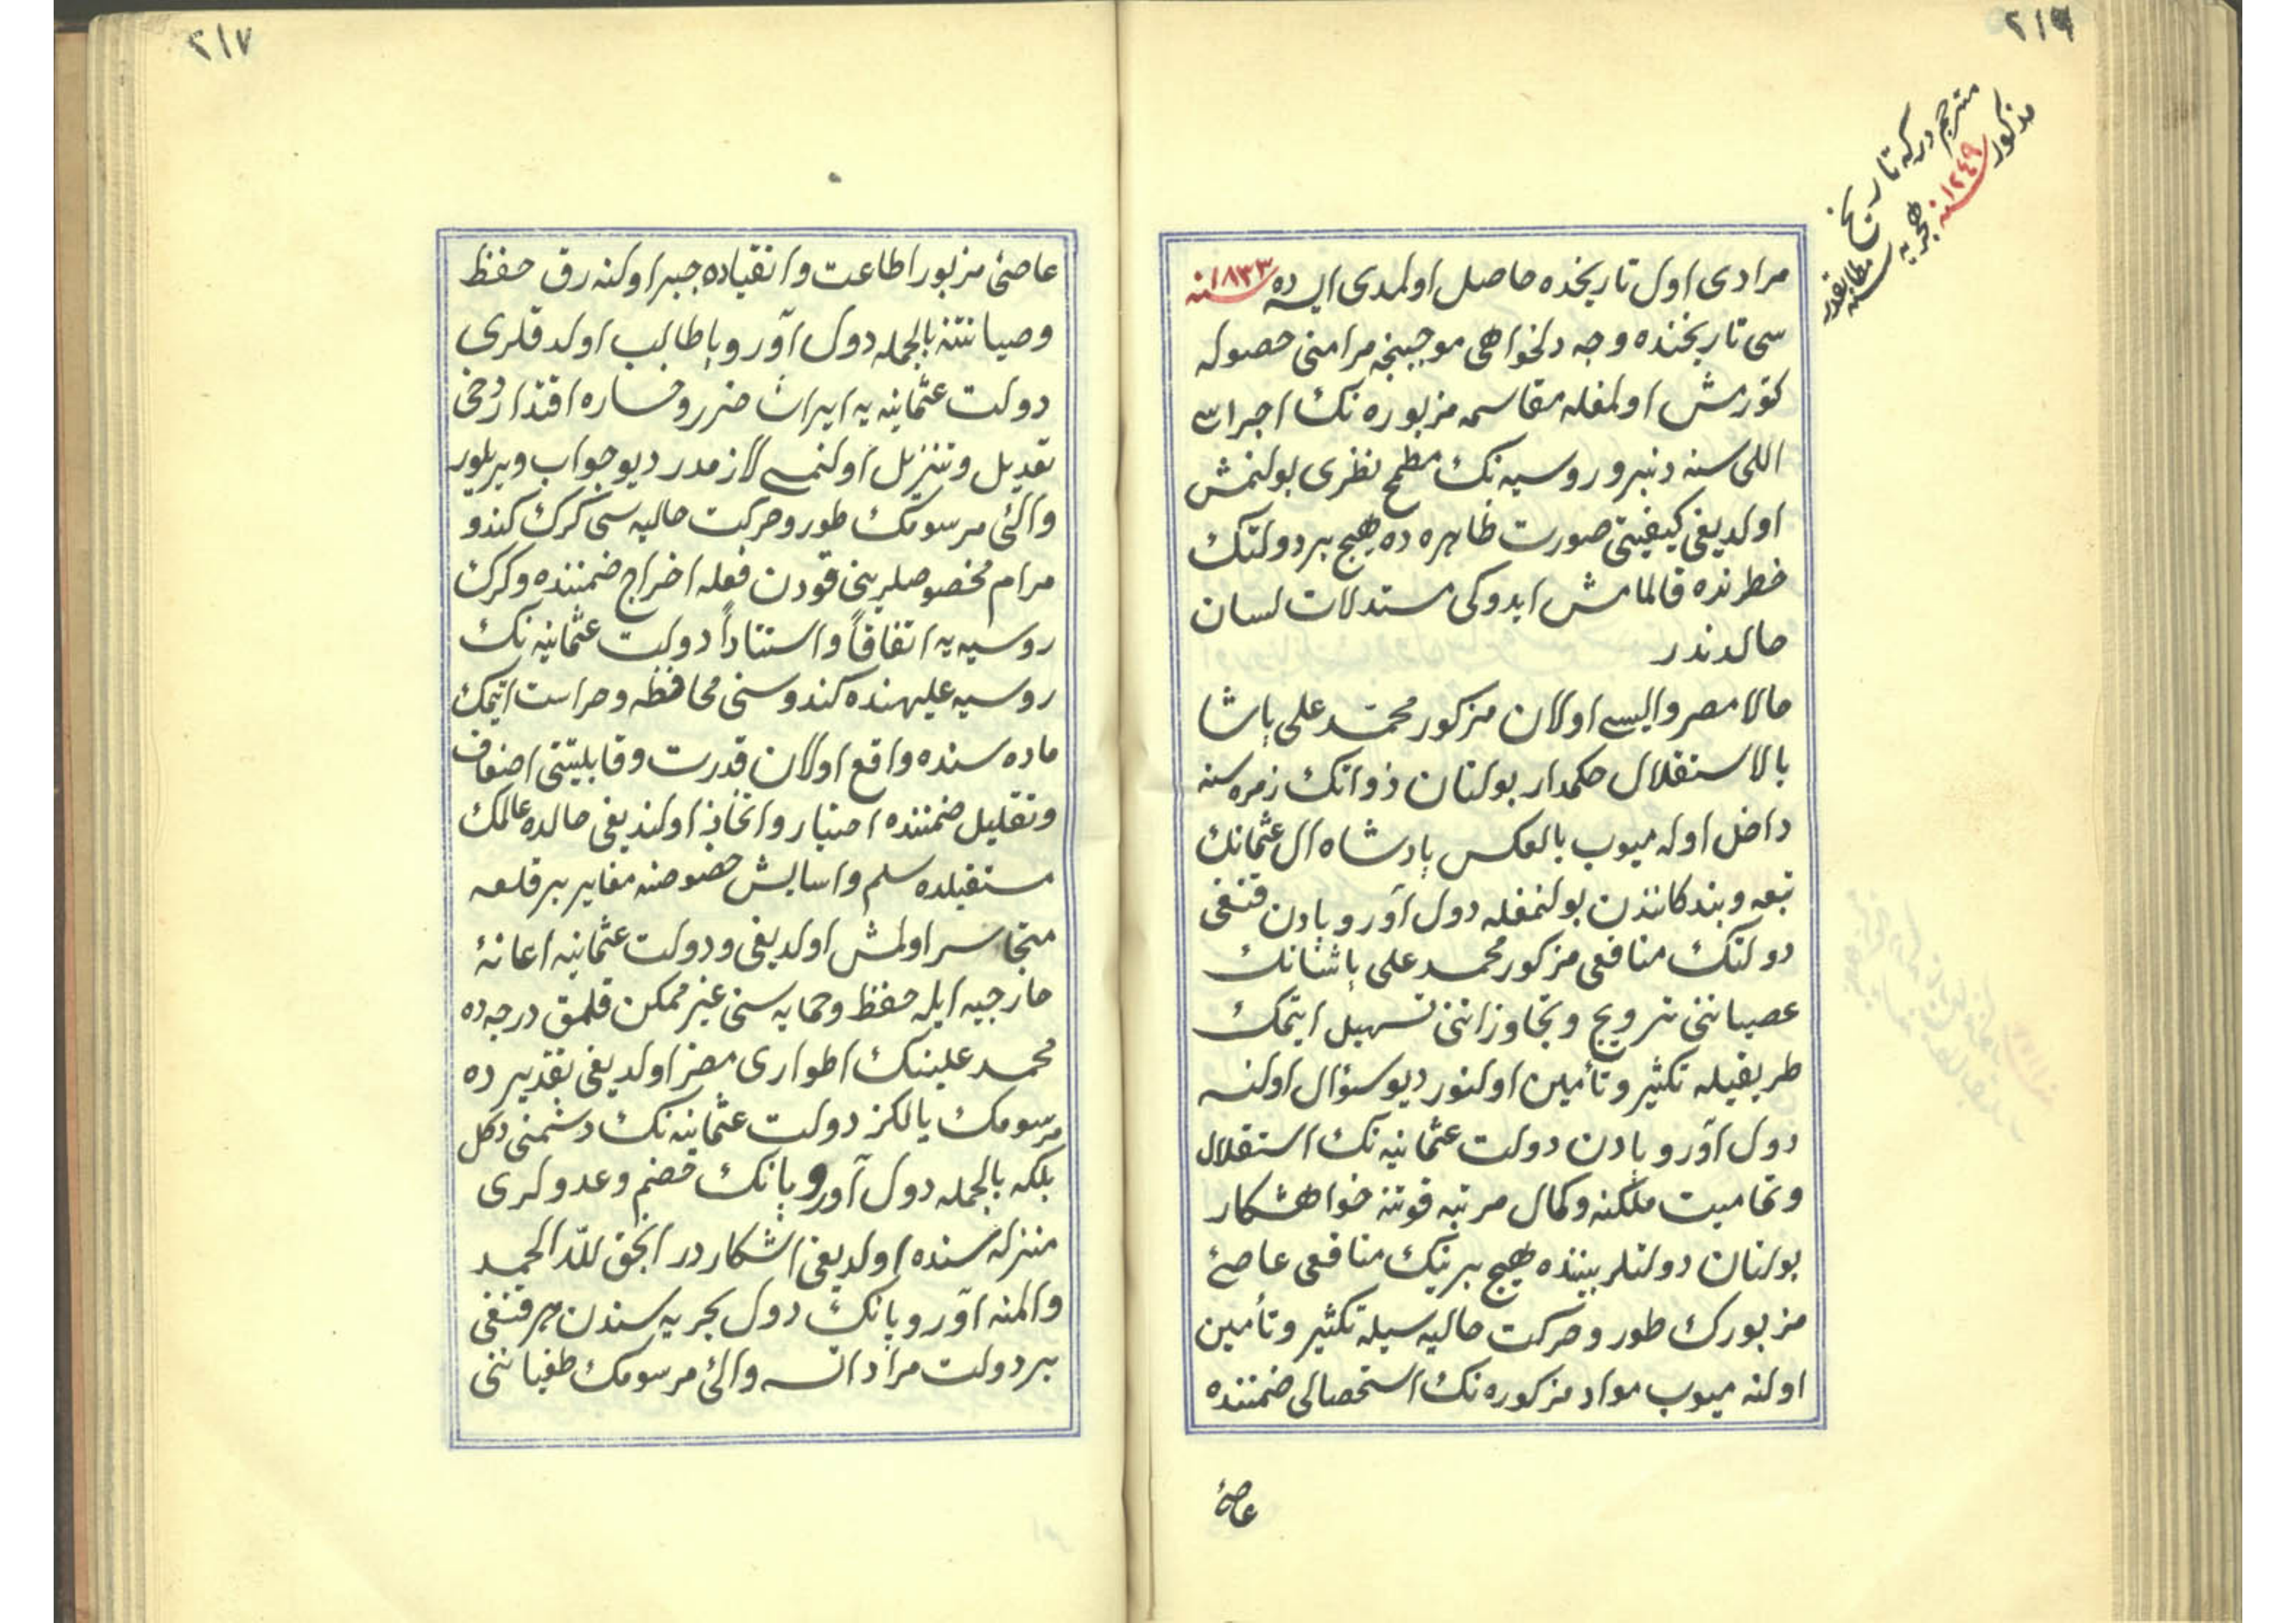 ٢١٦
مترجم دركه تاريخ
مذكور ١٢٤٩ هجريه
سنه مطابقدر
مرادى اول تاريخده حاصل اولمدى ايسه ده ١٨٣٣ سنه
سى تاريخنده وجه دلخواهى موجبنجه مرامنى حصوله
كتورمش اولمغله مقاسمه مزبوره نك اجراسى
اللى سنه دنبرو روسيه نك مطمح نظرى بولنمش
اولديغى كيفيتى صورت ظاهره ده هيچ بر دولتك
خطرنده قالمامش ايدوكى مستدلات لسان
حالدندر
حالا مصر واليسى اولان مزكور محمد على پاشا
بالاستقلال حكمدار بولنان ذواتك زمره سنه
داخل اوله ميوب بالعكس پادشاه ال عثمانك
تبعه وبندكانندن بولنمغله دول آوروپادن قنغى
دولتك منافعى مزكور محمد على پاشانك
عصياننى ترويج وتجاوزاتنى تسهيل ايتمك
طريقيله تكثير وتأمين اولنور ديو سؤال اولنسه
دول آوروپادن دولت عثمانيه نك استقلال
وتماميت ملكنه وكمال مرتبه قوتنه خواهشكار
بولنان دولتلر بيننده هيچ برينك منافعى عاصئ
مزبورك طور وحركت حاليه سيله تكثير وتأمين
اولنه ميوب مواد مزكوره نك استحصالى ضمننده
عاصئ
٢١٧
عاصئ مزبور اطاعت وانقياده جبر اولنه رق حفظ
وصيانتنه بالجمله دول آوروپا طالب اولدقلرى
دولت عثمانيه يه ايراث ضرر وخساره اقتدار دخى
تعديل وتنزيل اولنمسى لازمدر ديو جواب ويريلور
والئ مرسومك طور وحركت حاليه سى كرك كندو
مرام مخصوصلرينى قوه دن فعله اخراج ضمننده وكرك
روسيه يه اتفاقاً واستناداً دولت عثمانيه نك
روسيه عليهنده كندوسنى محافظه وحراست ايتمك
ماده سنده واقع اولان قدرت وقابليتنى اضعاف
وتقليل ضمننده اختيار واتخاذ اولنديغى حالده عالمك
مستقبلده سلم واسايش خصوصنه مغاير بر فلعه
متجاسر اولمش اولديغى ودولت عثمانيه اعانهٔ
خارجيه ايله حفظ وحمايه سنى غير ممكن قلمق درجه ده
محمد علينك اطوارى مضر اولديغى تقديرده
مرسومك يالكز دولت عثمانيه نك دشمنى دكل
بلكه بالجمله دول آوروپانك خصم وعدولرى
منزله سنده اولديغى اشكاردر انجق لله الحمد
والمنه آوروپانك دول بحريه سندن هر قنغى
بر دولت مراد ايتسه والئ مرسومك طغياننى